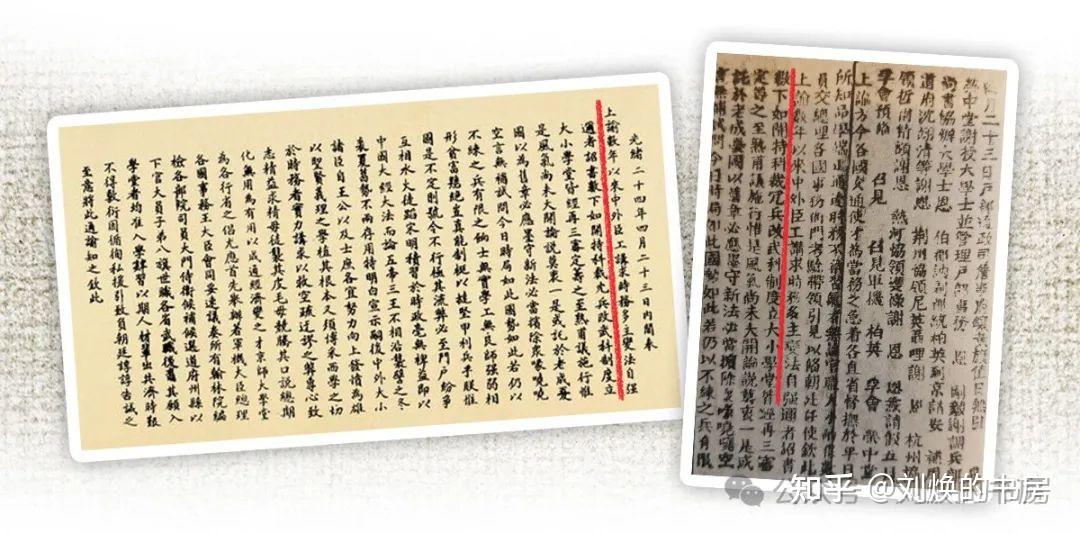 光緒二十四年四月二十三日內閣奉
上諭數年以來中外臣工講求時務多主變法自強
邇者詔書數下如開特科裁冗兵改武科制度立
大小學堂皆經再三審定籌之至熟甫議施行惟
是風氣尚未大開論說莫衷一是或託於老成憂
國以為舊章必應墨守新法必當擯除眾喙嘵嘵
空言無補試問今日時局如此國勢如此若仍以
不練之兵有限之餉士無實學工無良師強弱相
形貧富懸絕豈真能制梃以撻堅甲利兵乎朕惟
國是不定則號令不行極其流弊必至門戶紛爭
互相水火徒蹈宋明積習於時政毫無裨益即以
中國大經大法而論五帝三王不相沿襲譬之冬
裘夏葛勢不兩存用特明白宣示嗣後中外大小
諸臣自王公以及士庶各宜努力向上發憤為雄
以聖賢義理之學植其根本又須博采西學之切
於時務者實力講求以救空疏迂謬之弊專心致
志精益求精毋徒襲其皮毛毋競騰其口說總期
化無用為有用以成通經濟變之才京師大學堂
為各行省之倡尤應首先舉辦著軍機大臣總理
各國事務王大臣會同妥速議奏所有翰林院編
檢各部院司員大門侍衛候補候選道府州縣以
下官大員子弟八旗世職各省武職後裔其願入
學堂者均准入學肄業以期人材輩出共濟時艱
不得敷衍因循徇私援引致負朝廷諄諄告誡之
至意將此通諭知之欽此
月二十三日戶部
中堂謝授大學士並管理戶部事務 恩
尚書協辦大學士恩
道府沈翊清等謝恩 荆州協領尼英
領哲 謝恩 熱河協領 謝 恩
學會 召見 召見軍機 柏英 學會
上諭方今各國交通使才為當務之急着各直省督撫於平日
所知品學端正通達時務不
員交總理各國事務衙門考驗帶領引見以備朝廷任使欽此
上諭數年以來中外臣工講求時務多主變法自強邇者詔書
數下如開特科裁冗兵改武科制度立大小學堂皆經再三審
定籌之至熟甫議施行惟是風氣尚未大開論說莫衷一是或
託於老成憂國以為舊章必應墨守新法必當擯除眾喙嘵嘵空
言無補試問今日時局如此國勢如此若仍以不練之兵有限
知乎 @刘焕的书房